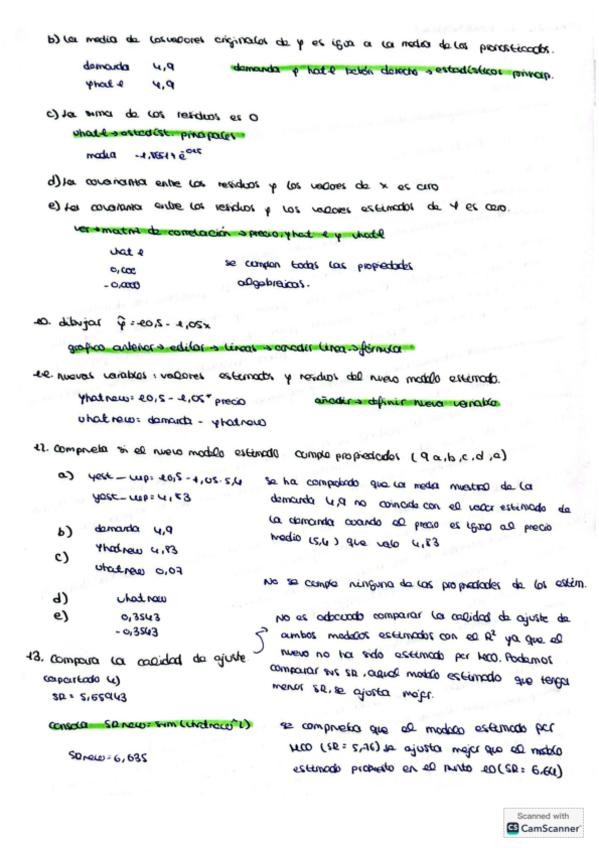 b) La media de los valores originales de y es igual a la media de los pronosticados.
demanda 4,9
yhat 1 4,9
demanda y hat 1 botón derecho → estadísticos princip.
c) La suma de los residuos es 0
uhat1 → estadíst. principales
media
d) La covarianza entre los residuos y los valores de x es cero
e) La covarianza entre los residuos y los valores estimados de Y es cero.
ver → matriz de correlación → precio, yhat 1 y uhat1
uhat 1
0,000
-0,000
se cumplen todas las propiedades
algebraicas.
10. dibujar ŷ = 10,5 - 1,05x
gráfico anterior → editar → líneas → añadir línea → fórmula
nuevas variables: valores estimados y residuos del nuevo modelo estimado.
yhatnew = 10,5 - 1,05 * precio
uhatnew = demanda - yhatnew
añadir → definir nueva variable
12. Comprueba si el nuevo modelo estimado cumple propiedades (9 a, b, c, d, e)
a) yest_wp = 10,5 - 1,05 · 5,4
yest_wp = 4,83
se ha comprobado que la media muestral de la
demanda 4,9 no coincide con el valor estimado de
la demanda cuando el precio es igual al precio
medio (5,4) que vale 4,83
b) demanda 4,9
yhatnew 4,83
c) uhatnew 0,07
No se cumple ninguna de las propiedades de los estim.
d) uhatnew
e) 0,3543
-0,3543
No es adecuado comparar la calidad de ajuste de
ambos modelos estimados con el R² ya que el
nuevo no ha sido estimado por MCO. Podemos
comparar sus SR, aquel modelo estimado que tenga
menor SR, se ajusta mejor.
13. Compara la calidad de ajuste
(apartado 4)
SR =
consola SRnew = sum(uhatnew^2)
SRnew = 6,635
se comprueba que el modelo estimado por
MCO (SR = 5,76) se ajusta mejor que el modelo
estimado propuesto en el punto 10 (SR = 6.64)
Scanned with
CS CamScanner